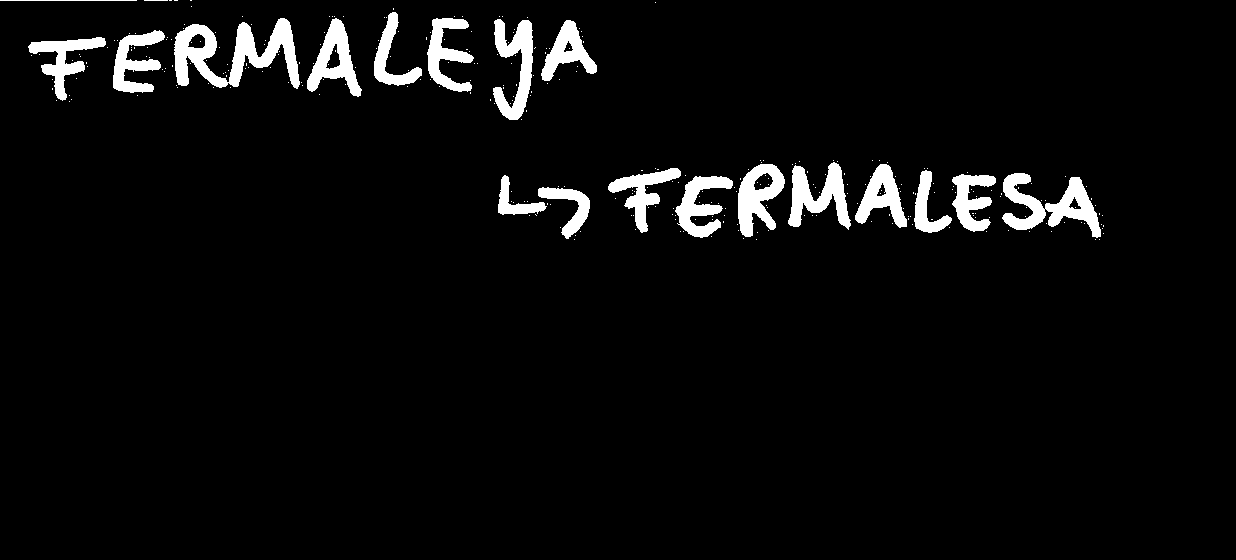 FERMALEYA
↳ FERMALESA